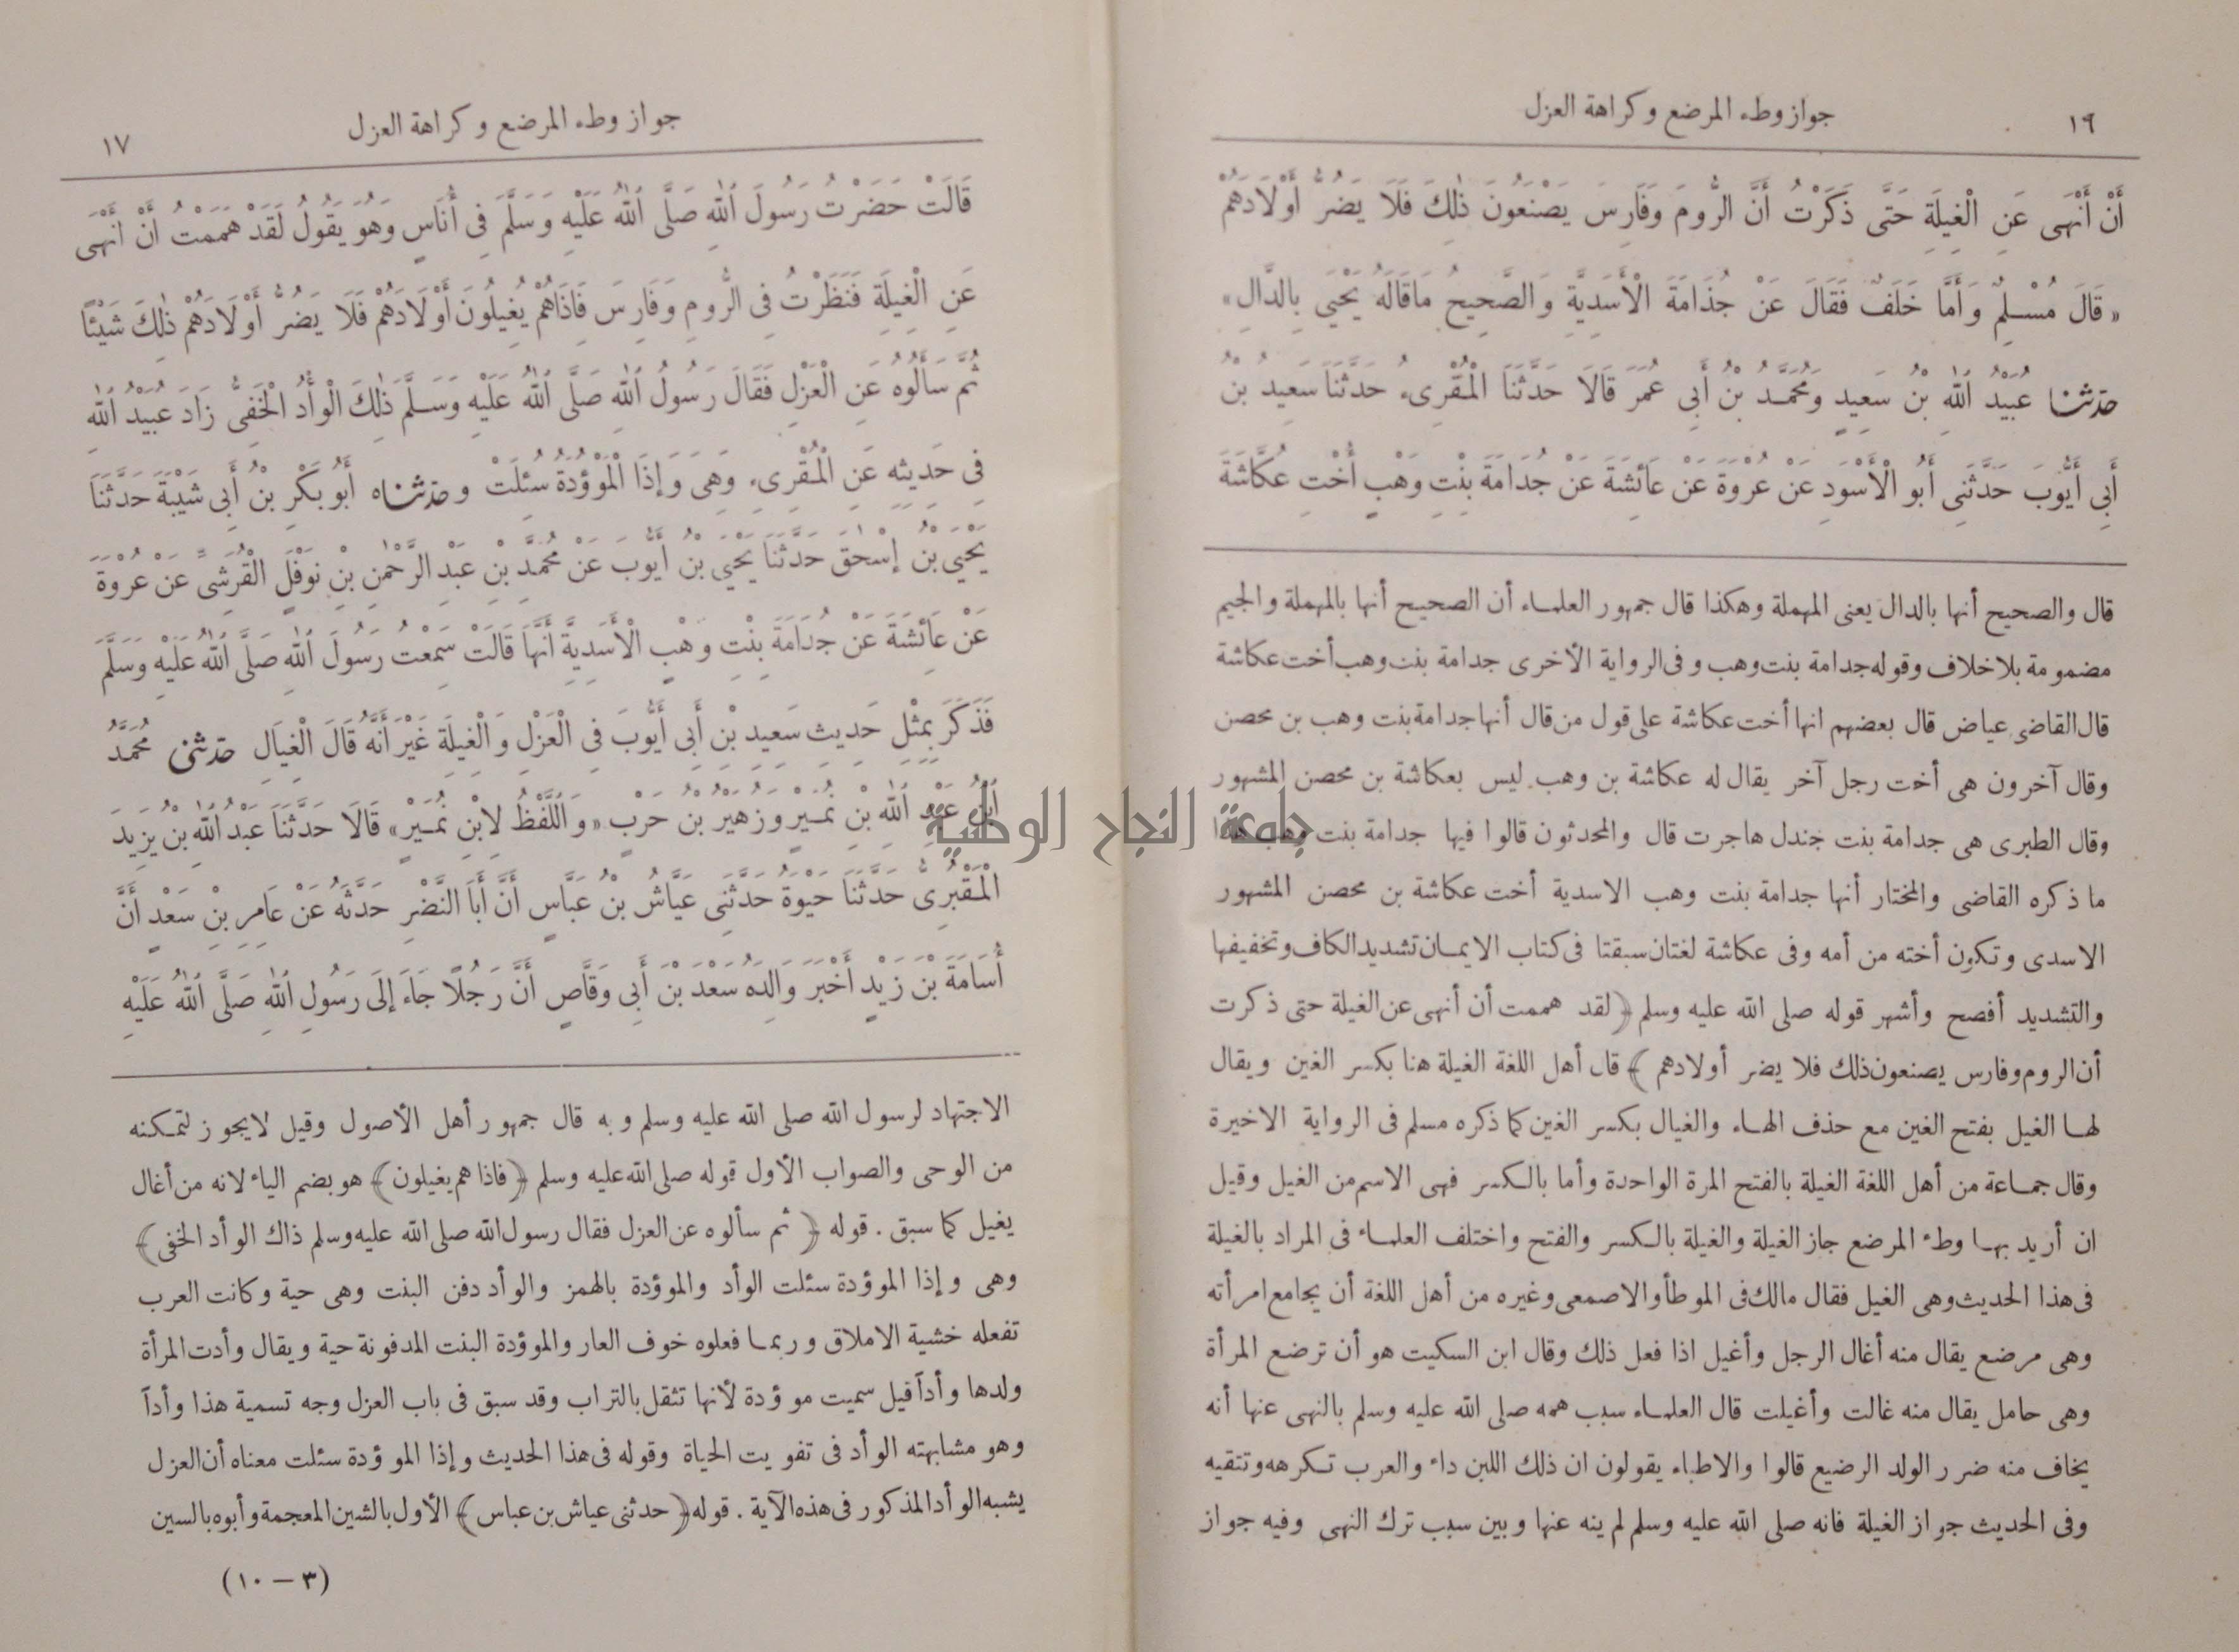 ١٩
جواز وطء المرضع وكراهة العزل
أَنْ أَنْهَى عَنِ الْغِيلَةِ حَتَّى ذَكَرْتُ أَنَّ الرُّومَ وَفَارِسَ يَصْنَعُونَ ذٰلِكَ فَلَا يَضُرُّ أَوْلَادَهُمْ
« قَالَ مُسْلِمٌ وَأَمَّا خَلَفٌ فَقَالَ عَنْ جُذَامَةَ الْأَسَدِيَّةِ وَالصَّحِيحُ مَاقَالَهُ يَحْيَى بِالدَّالِ »
حدثنا عُبَيْدُ اللهِ بْنُ سَعِيدٍ وَمُحَمَّدُ بْنُ أَبِي عُمَرَ قَالَا حَدَّثَنَا الْمُقْرِىءُ حَدَّثَنَا سَعِيدُ بْنُ
أَبِي أَيُّوبَ حَدَّثَنِي أَبُو الْأَسْوَدِ عَنْ عُرْوَةَ عَنْ عَائِشَةَ عَنْ جُدَامَةَ بِنْتِ وَهْبٍ أُخْتِ عُكَّاشَةَ
قال والصحيح أنها بالدال يعنى المهملة وهكذا قال جمهور العلماء أن الصحيح أنها بالمهملة والجيم
مضمومة بلا خلاف وقوله جدامة بنت وهب وفى الرواية الأخرى جدامة بنت وهب أخت عكاشة
قال القاضى عياض قال بعضهم انها أخت عكاشة على قول من قال أنها جدامة بنت وهب بن محصن
وقال آخرون هى أخت رجل آخر يقال له عكاشة بن وهب ليس بعكاشة بن محصن المشهور
وقال الطبرى هى جدامة بنت جندل هاجرت قال والمحدثون قالوا فيها جدامة بنت وهب هذا
ما ذكره القاضى والمختار أنها جدامة بنت وهب الاسدية أخت عكاشة بن محصن المشهور
الاسدى وتكون أخته من أمه وفى عكاشة لغتان سبقتا فى كتاب الايمان تشديد الكاف وتخفيفها
والتشديد أفصح وأشهر قوله صلى الله عليه وسلم ﴿ لقد هممت أن أنهى عن الغيلة حتى ذكرت
أن الروم وفارس يصنعون ذلك فلا يضر أولادهم ﴾ قال أهل اللغة الغيلة هنا بكسر الغين ويقال
لها الغيل بفتح الغين مع حذف الهاء والغيال بكسر الغين كما ذكره مسلم فى الرواية الاخيرة
وقال جماعة من أهل اللغة الغيلة بالفتح المرة الواحدة وأما بالكسر فهى الاسم من الغيل وقيل
ان أريد بها وطء المرضع جاز الغيلة والغيلة بالكسر والفتح واختلف العلماء فى المراد بالغيلة
فى هذا الحديث وهى الغيل فقال مالك فى الموطأ والاصمعى وغيره من أهل اللغة أن يجامع امرأته
وهى مرضع يقال منه أغال الرجل وأغيل اذا فعل ذلك وقال ابن السكيت هو أن ترضع المرأة
وهى حامل يقال منه غالت وأغيلت قال العلماء سبب همه صلى الله عليه وسلم بالنهى عنها أنه
يخاف منه ضرر الولد الرضيع قالوا والاطباء يقولون ان ذلك اللبن داء والعرب تكرهه وتتقيه
وفى الحديث جواز الغيلة فانه صلى الله عليه وسلم لم ينه عنها وبين سبب ترك النهى وفيه جواز
جواز وطء المرضع وكراهة العزل
١٧
قَالَتْ حَضَرْتُ رَسُولَ اللهِ صَلَّى اللهُ عَلَيْهِ وَسَلَّمَ فِى أُنَاسٍ وَهُوَ يَقُولُ لَقَدْ هَمَمْتُ أَنْ أَنْهَى
عَنِ الْغِيلَةِ فَنَظَرْتُ فِى الرُّومِ وَفَارِسَ فَاِذَاهُمْ يُغِيلُونَ أَوْلَادَهُمْ فَلَا يَضُرُّ أَوْلَادَهُمْ ذٰلِكَ شَيْئًا
ثُمَّ سَأَلُوهُ عَنِ الْعَزْلِ فَقَالَ رَسُولُ اللهِ صَلَّى اللهُ عَلَيْهِ وَسَلَّمَ ذٰلِكَ الْوَأْدُ الْخَفِىُّ زَادَ عُبَيْدُ اللهِ
فِى حَدِيثِهِ عَنِ الْمُقْرِىءِ وَهِىَ وَإِذَا الْمَوْؤُدَةُ سُئِلَتْ وحدثناه أَبُو بَكْرِ بْنُ أَبِى شَيْبَةَ حَدَّثَنَا
يَحْيَى بْنُ إِسْحٰقَ حَدَّثَنَا يَحْيَى بْنُ أَيُّوبَ عَنْ مُحَمَّدِ بْنِ عَبْدِ الرَّحْمٰنِ بْنِ نَوْفَلٍ الْقُرَشِىِّ عَنْ عُرْوَةَ
عَنْ عَائِشَةَ عَنْ جُدَامَةَ بِنْتِ وَهْبٍ الْأَسَدِيَّةِ أَنَّهَا قَالَتْ سَمِعْتُ رَسُولَ اللهِ صَلَّى اللهُ عَلَيْهِ وَسَلَّمَ
فَذَكَرَ بِمِثْلِ حَدِيثِ سَعِيدِ بْنِ أَبِى أَيُّوبَ فِى الْعَزْلِ وَالْغِيلَةِ غَيْرَ أَنَّهُ قَالَ الْغِيَالِ حدثنى مُحَمَّدُ
ابْنُ عَبْدِ اللهِ بْنِ نُمَيْرٍ وَزُهَيْرُ بْنُ حَرْبٍ « وَاللَّفْظُ لِابْنِ نُمَيْرٍ » قَالَا حَدَّثَنَا عَبْدُ اللهِ بْنُ يَزِيدَ
الْمَقْبُرِىُّ حَدَّثَنَا حَيْوَةُ حَدَّثَنِى عَيَّاشُ بْنُ عَبَّاسٍ أَنَّ أَبَا النَّضْرِ حَدَّثَهُ عَنْ عَامِرِ بْنِ سَعْدٍ أَنَّ
أُسَامَةَ بْنَ زَيْدٍ أَخْبَرَ وَالِدَهُ سَعْدَ بْنَ أَبِى وَقَّاصٍ أَنَّ رَجُلًا جَاءَ إِلَى رَسُولِ اللهِ صَلَّى اللهُ عَلَيْهِ
الاجتهاد لرسول الله صلى الله عليه وسلم وبه قال جمهور أهل الأصول وقيل لا يجوز لتمكنه
من الوحى والصواب الأول قوله صلى الله عليه وسلم ﴿ فاذا هم يغيلون ﴾ هو بضم الياء لانه من أغال
يغيل كما سبق . قوله ﴿ ثم سألوه عن العزل فقال رسول الله صلى الله عليه وسلم ذاك الوأد الخفى ﴾
وهى وإذا الموؤدة سئلت الوأد والموؤدة بالهمز والوأد دفن البنت وهى حية وكانت العرب
تفعله خشية الاملاق وربما فعلوه خوف العار والموؤدة البنت المدفونة حية ويقال وأدت المرأة
ولدها وأداً قيل سميت موؤدة لأنها تثقل بالتراب وقد سبق فى باب العزل وجه تسمية هذا وأداً
وهو مشابهته الوأد فى تفويت الحياة وقوله فى هذا الحديث وإذا الموؤدة سئلت معناه أن العزل
يشبه الوأد المذكور فى هذه الآية . قوله ﴿ حدثنى عياش بن عباس ﴾ الأول بالشين المعجمة وأبوه بالسين
(٣ – ١٠)
جامعة النجاح الوطنية